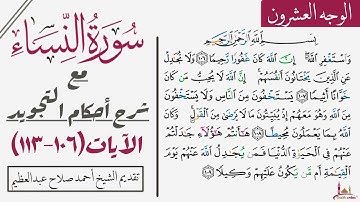 الوجه العشرون
سُورَةُ النِّسَاءِ
مع
شرح أحكام التجويد
الآيات (١٠٦-١١٣)
تقديم الشيخ أحمد صلاح عبد العظيم
بِسْمِ اللَّهِ الرَّحْمَٰنِ الرَّحِيمِ
وَاسْتَغْفِرِ اللَّهَ ۖ إِنَّ اللَّهَ كَانَ غَفُورًا رَحِيمًا ﴿١٠٦﴾ وَلَا تُجَادِلْ
عَنِ الَّذِينَ يَخْتَانُونَ أَنْفُسَهُمْ ۚ إِنَّ اللَّهَ لَا يُحِبُّ مَنْ كَانَ
خَوَّانًا أَثِيمًا ﴿١٠٧﴾ يَسْتَخْفُونَ مِنَ النَّاسِ وَلَا يَسْتَخْفُونَ
مِنَ اللَّهِ وَهُوَ مَعَهُمْ إِذْ يُبَيِّتُونَ مَا لَا يَرْضَىٰ مِنَ الْقَوْلِ ۚ وَكَانَ
اللَّهُ بِمَا يَعْمَلُونَ مُحِيطًا ﴿١٠٨﴾ هَا أَنْتُمْ هَٰؤُلَاءِ جَادَلْتُمْ
عَنْهُمْ فِي الْحَيَاةِ الدُّنْيَا فَمَنْ يُجَادِلُ اللَّهَ عَنْهُمْ يَوْمَ
الْقِيَامَةِ أَمْ مَنْ يَكُونُ عَلَيْهِمْ وَكِيلًا ﴿١٠٩﴾